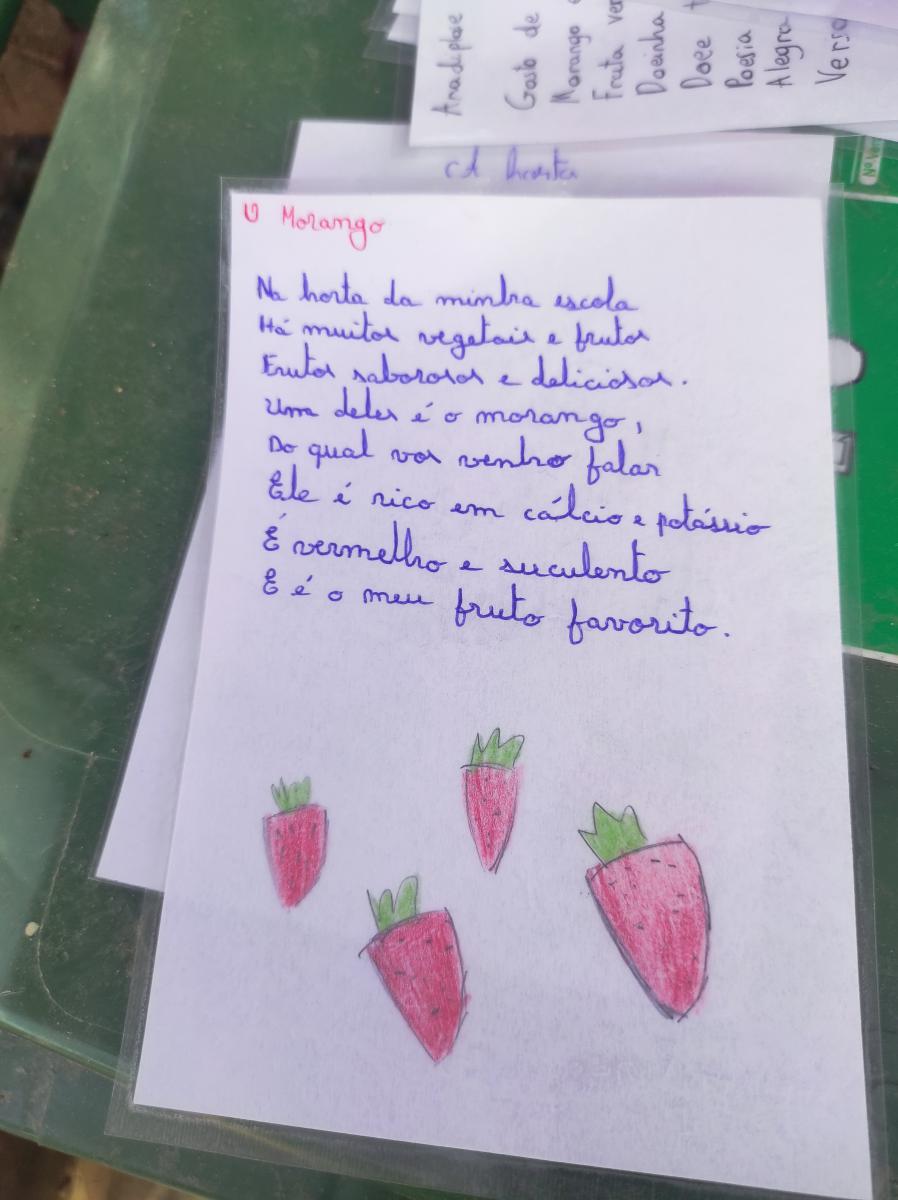 Anadiplose
Gosto de
Morango
Fruta
Docinha
Doce
Poesia
Alegra
Verso
A horta
O Morango
Na horta da minha escola
Há muitos vegetais e frutos
Frutos saborosos e deliciosos.
Um deles é o morango,
Do qual vos venho falar
Ele é rico em cálcio e potássio
É vermelho e suculento
E é o meu fruto favorito.